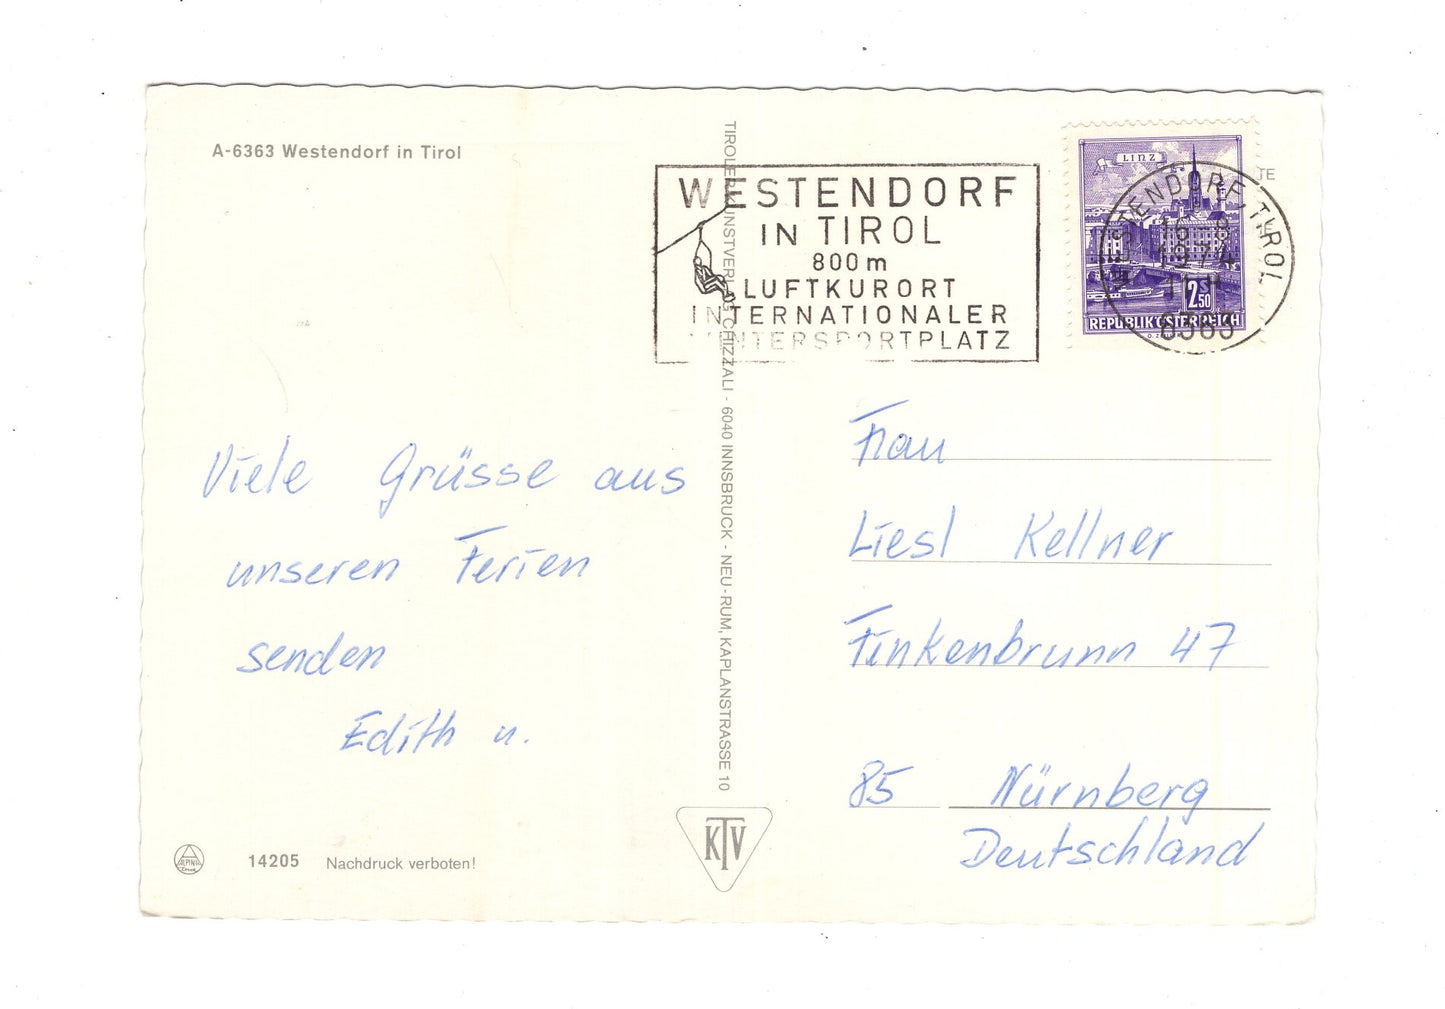 A-6363 Westendorf in Tirol
WESTENDORF
IN TIROL
800 m
LUFTKURORT
INTERNATIONALER
WINTERSPORTPLATZ
LINZ
2.50
REPUBLIK ÖSTERREICH
WESTENDORF, TIROL
1974
6363
TE
TIROLER KUNSTVERLAG CHIZZALI - 6040 INNSBRUCK - NEU-RUM, KAPLANSTRASSE 10
Viele Grüsse aus
unseren Ferien
senden
Edith u.
Frau
Liesl Kellner
Finkenbrunn 47
85 Nürnberg
Deutschland
KTV
ALPINA
14205 Nachdruck verboten!